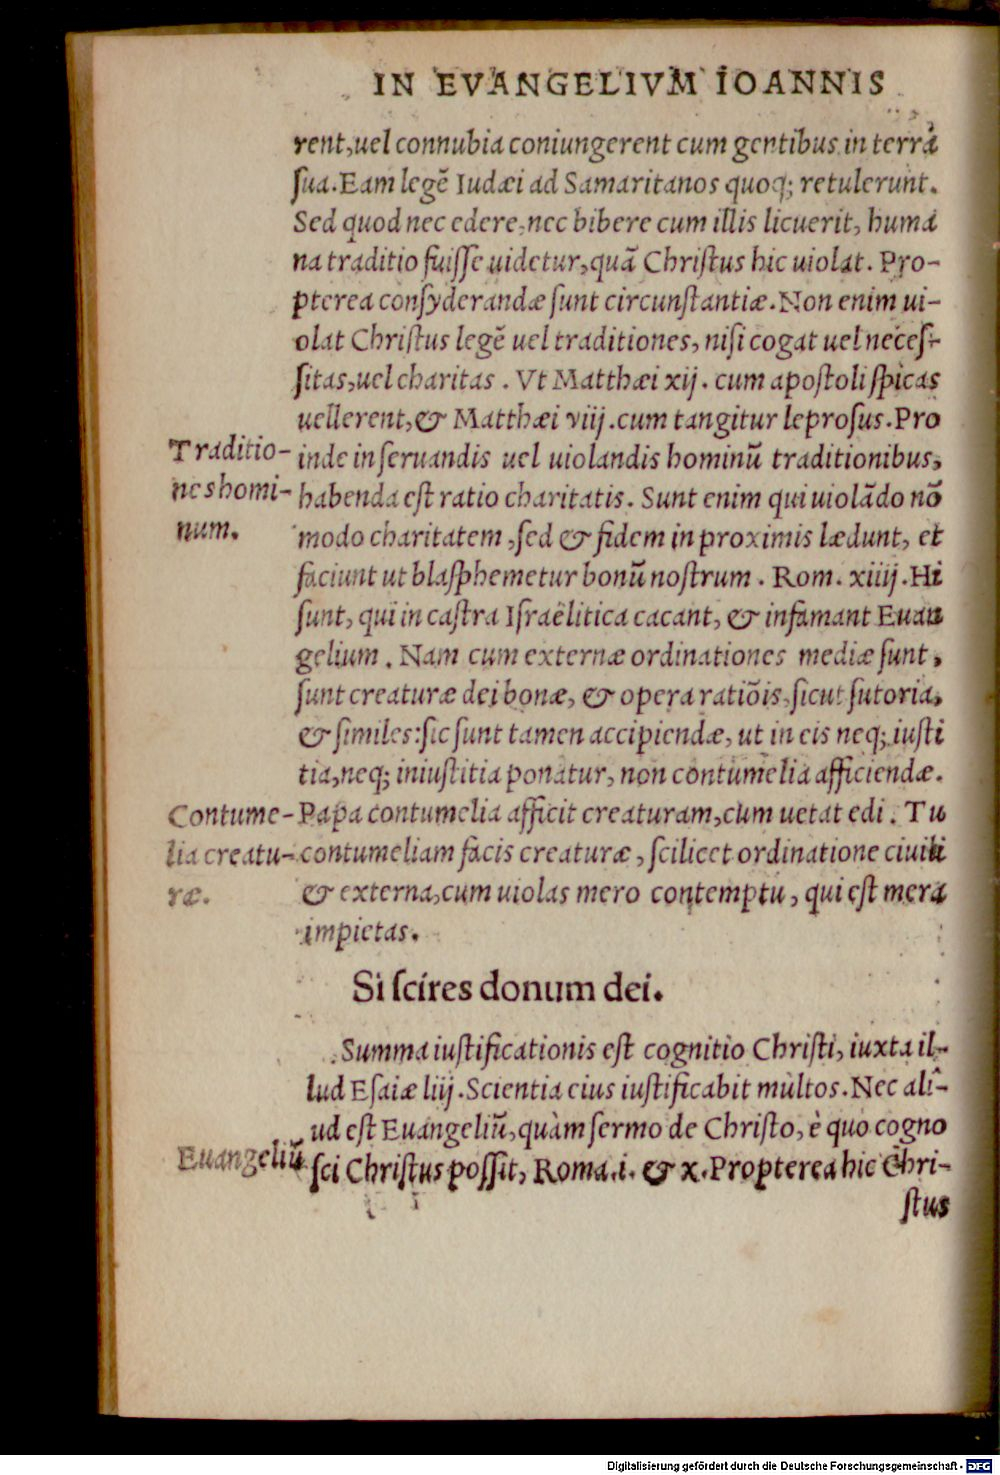 IN EVANGELIVM IOANNIS
rent, uel connubia coniungerent cum gentibus in terrá
ſua. Eam legẽ Iudæi ad Samaritanos quoq; retulerunt.
Sed quod nec edere, nec bibere cum illis licuerit, huma
na traditio fuiſſe uidetur, quã Chriſtus hic uiolat. Pro-
pterea conſyderandæ ſunt circunſtantiæ. Non enim ui-
olat Chriſtus legẽ uel traditiones, niſi cogat uel neceſ-
ſitas, uel charitas. Vt Matthæi xij. cum apoſtoli ſpicas
uellerent, & Matthæi viij. cum tangitur leproſus. Pro
Traditio-
nes homi-
num.
inde in ſeruandis uel uiolandis hominũ traditionibus,
habenda eſt ratio charitatis. Sunt enim qui uiolãdo nõ
modo charitatem, ſed & fidem in proximis lædunt, et
faciunt ut blaſphemetur bonũ noſtrum. Rom. xiiij. Hi
ſunt, qui in caſtra Iſraëlitica cacant, & infamant Euan
gelium. Nam cum externæ ordinationes mediæ ſunt,
ſunt creaturæ dei bonæ, & opera ratiõis, ſicut ſutoria,
& ſimiles: ſic ſunt tamen accipiendæ, ut in eis neq; iuſti
tia, neq; iniuſtitia ponatur, non contumelia afficiendæ.
Contume-
lia creatu-
ræ.
Papa contumelia afficit creaturam, cum uetat edi. Tu
contumeliam facis creaturæ, ſcilicet ordinatione ciuili
& externa, cum uiolas mero contemptu, qui eſt mera
impietas.
Si ſcires donum dei.
Summa iuſtificationis eſt cognitio Chriſti, iuxta il-
lud Eſaiæ liij. Scientia eius iuſtificabit multos. Nec ali-
ud eſt Euangeliũ, quàm ſermo de Chriſto, è quo cogno
Euangeliũ
ſci Chriſtus poſſit, Roma. i. & x. Propterea hic Chri-
ſtus
Digitalisierung gefördert durch die Deutsche Forschungsgemeinschaft - DFG